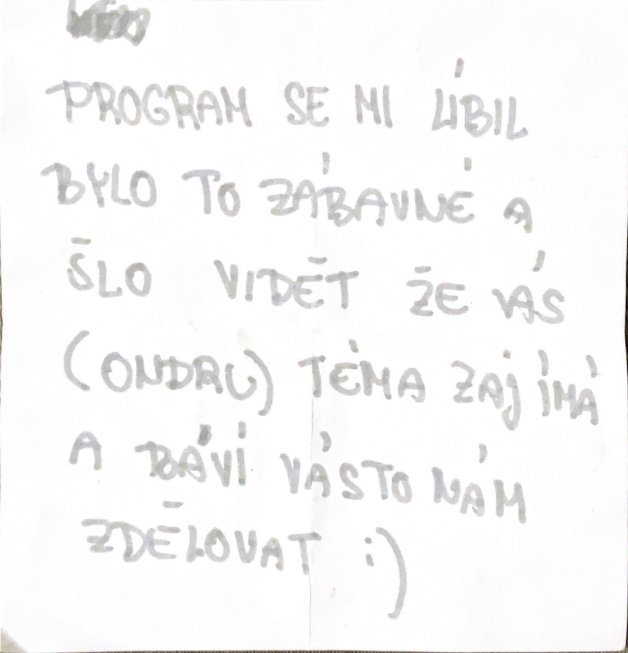 PROGRAM SE MI LÍBIL
BYLO TO ZÁBAVNÉ A
ŠLO VIDĚT ŽE VÁS
(ONDRU) TÉMA ZAJÍMÁ
A BÁVÍ VÁSTO NÁM
ZDĚLOVAT :)